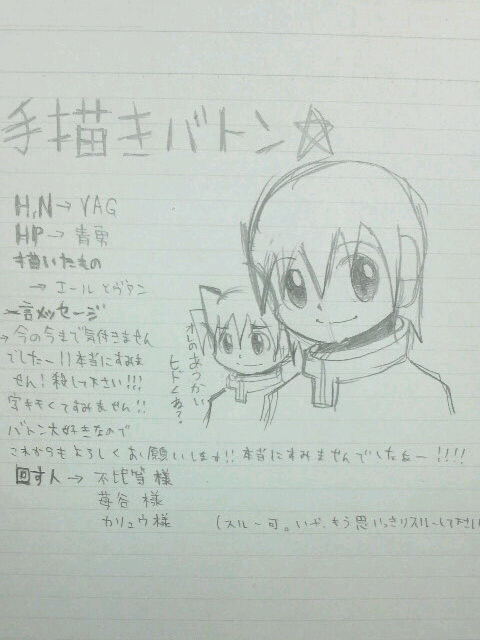 手描きバトン☆
H,N→YAG
HP→青東
描いたもの
→エールとヴァン
一言メッセージ
→今の今まで気付きません
でしたー!!本当にすみま
せん!殺して下さい!!!
字キモくてすみません!!
バトン大好きなので
これからもよろしくお願いします!!本当にすみませんでしたぁー!!!!
オレのあつかい
ヒドくね?
回す人→不比等様
苺谷様
カリュウ様
(スルー可。いや、もう思いっきりスルーして下さい